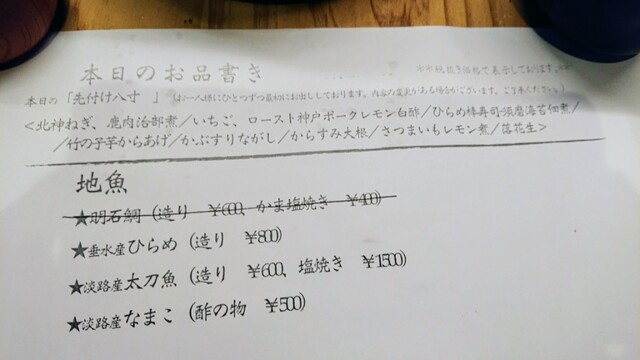 本日のお品書き
※※税抜き価格で表示しております。※※
本日の「先付け八寸 」(お一人様にひとつずつ最初にお出ししております。内容の変更がある場合がございます。ご了承ください)
<北神ねぎ、鹿肉治部煮/いちご、ロースト神戸ポークレモン白酢/ひらめ棒寿司・須磨海苔佃煮/
/竹の子芋からあげ/かぶすりながし/からすみ大根/さつまいもレモン煮/落花生>
地魚
★明石鯛(造り ¥600、かま塩焼き ¥400)
★垂水産ひらめ(造り ¥800)
★淡路産太刀魚(造り ¥600、塩焼き ¥1500)
★淡路産なまこ(酢の物 ¥500)